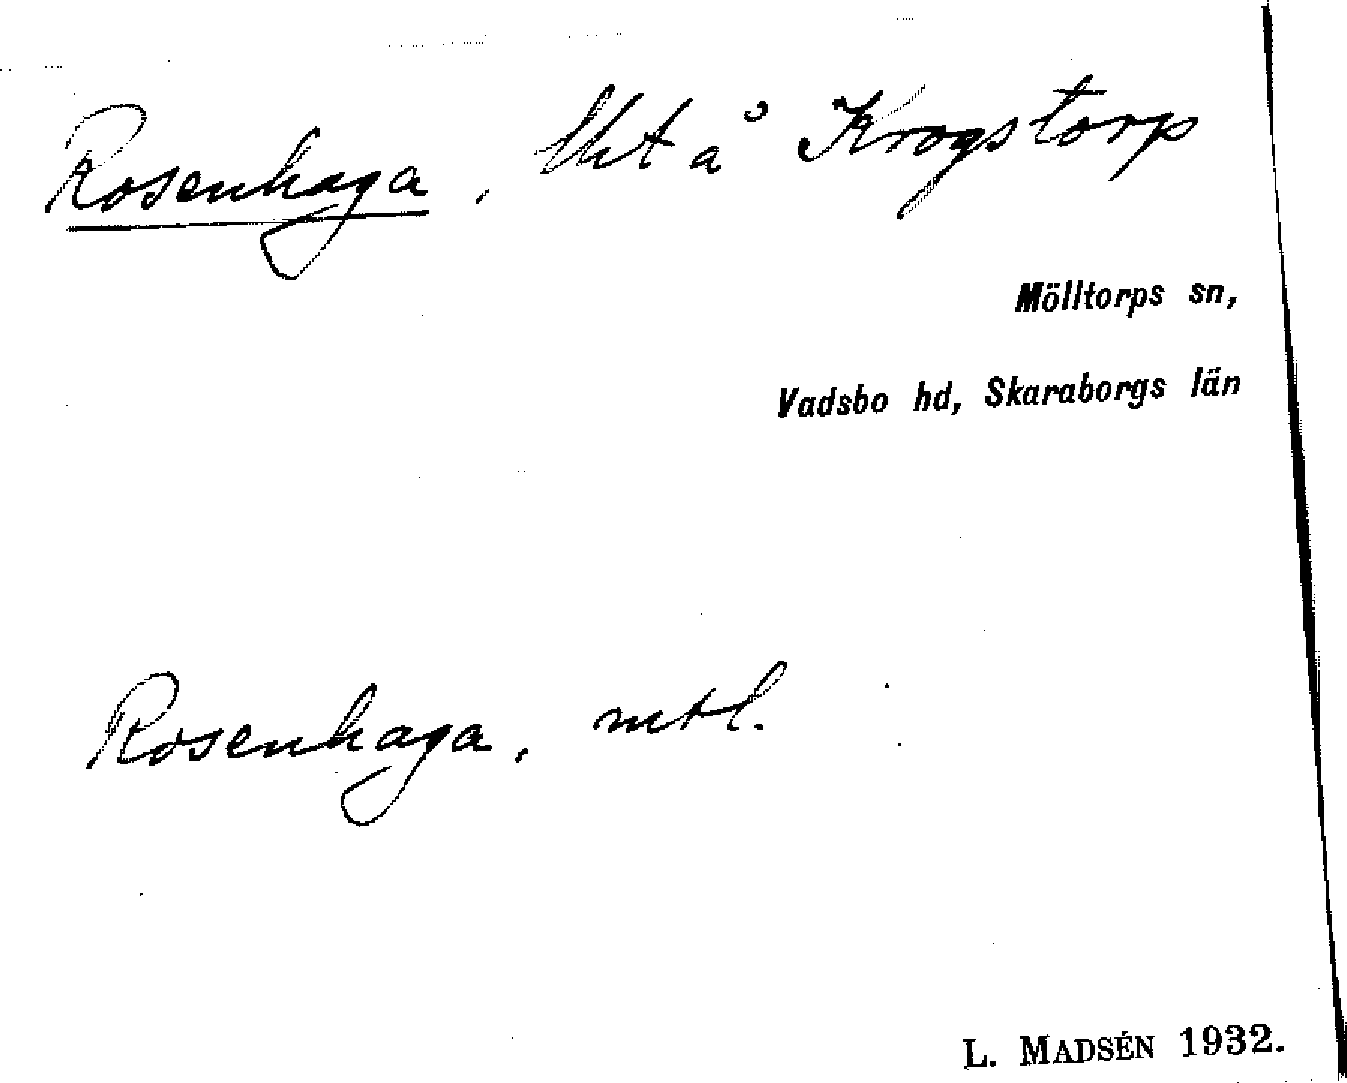 Rosenhaga, lht å Krogstorp
Mölltorps sn,
Vadsbo hd, Skaraborgs län
Rosenhaga, mtl.
L. MADSÉN 1932.